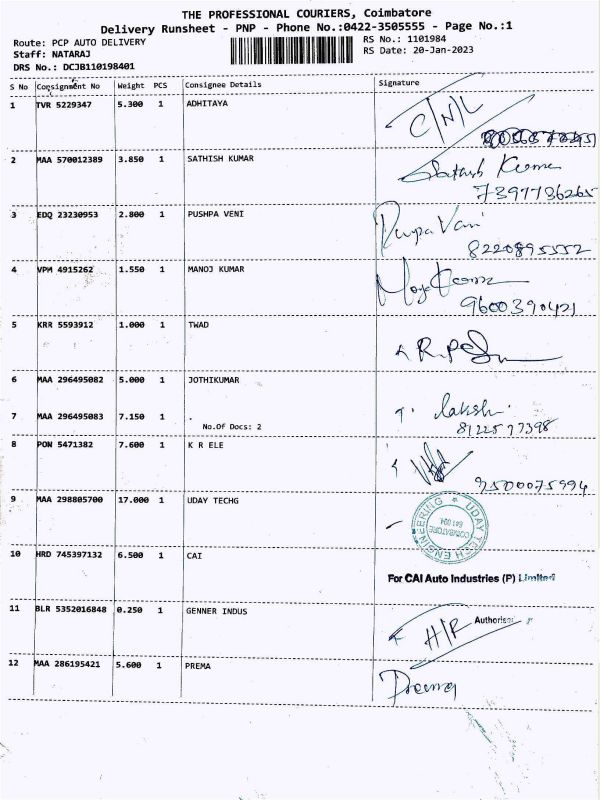 THE PROFESSIONAL COURIERS, Coimbatore
Delivery Runsheet - PNP - Phone No.:0422-3505555 - Page No.:1
Route: PCP AUTO DELIVERY
Staff: NATARAJ
DRS No.: DCJB110198401
RS No.: 1101984
RS Date: 20-Jan-2023
S No Consignment No Weight PCS Consignee Details Signature
1 TVR 5229347 5.300 1 ADHITAYA
C/N/L
2 MAA 570012389 3.850 1 SATHISH KUMAR
Sathish Kumar
7397736265
3 EDQ 23230953 2.800 1 PUSHPA VENI
8220895552
4 VPM 4915262 1.550 1 MANOJ KUMAR
9600390421
5 KRR 5593912 1.000 1 TWAD
6 MAA 296495082 5.000 1 JOTHIKUMAR
7 MAA 296495083 7.150 1 .
No.Of Docs: 2
T. lakshi
8122577398
8 PON 5471382 7.600 1 K R ELE
9500075994
9 MAA 298805700 17.000 1 UDAY TECHG
UDAY TECH ENGINEERING
COIMBATORE
641 004
10 HRD 745397132 6.500 1 CAI
For CAI Auto Industries (P) Limited
11 BLR 5352016848 0.250 1 GENNER INDUS
H/R
12 MAA 286195421 5.600 1 PREMA
Prema